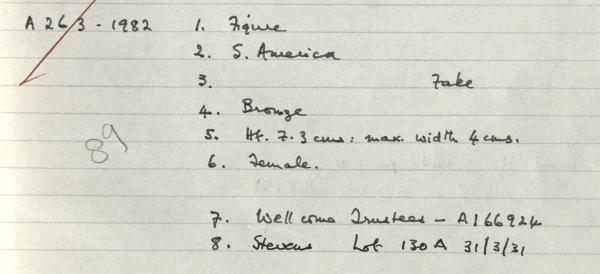 A 263 - 1982 1. Figure
2. S. America
3. Fake
4. Bronze
5. Ht. 7.3 cms : max. width 4 cms.
6. Female.
89
7. Wellcome Trustees - A166924
8. Stevens Lot 130A 31/3/31